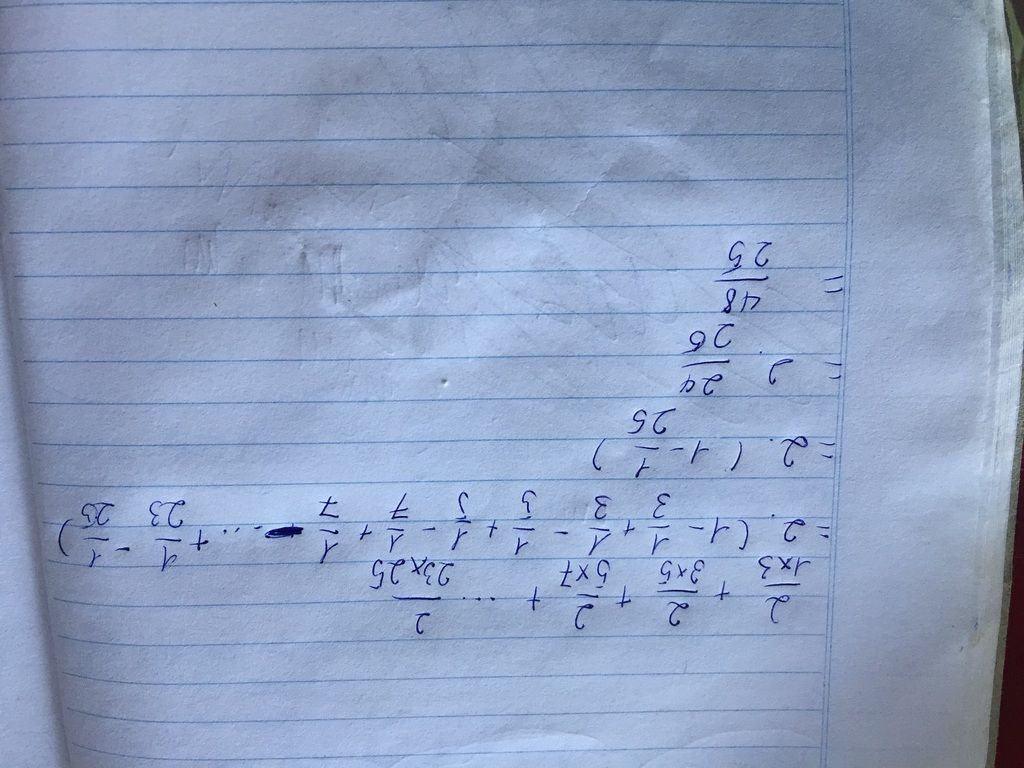 2/1x3 + 2/3x5 + 2/5x7 + ... 2/23x25
= 2. (1 - 1/3 + 1/3 - 1/5 + 1/5 - 1/7 + 1/7 - ... + 1/23 - 1/25)
= 2. (1 - 1/25)
= 2. 24/25
= 48/25